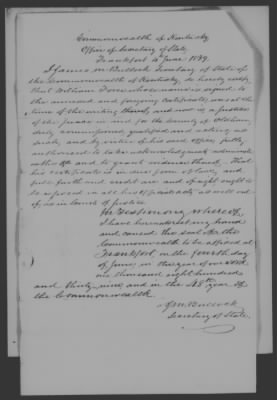 Commonwealth of Kentucky
Office of Secretary of State,
Frankfort 4 June 1839.
I James M. Bullock Secretary of State of
the Commonwealth of Kentucky, do hereby certify
that William whose name is signed to
the annexed and foregoing certificate, was at the
time of the writing thereof, and now is a justice
of the peace in and for the County of Oldham,
duly commissioned, qualified and acting as
such, and by virtue of his said office, fully
authorised to take acknowledgments, administer
oaths &c and to grant evidence thereof. That
his certificate is in due form of law, and
full faith and credit are and of right ought to
be in all his official acts as well out
of, as in Courts of Justice.
In Testimony whereof,
I have hereunto set my hand
and caused the seal of the
Commonwealth to be affixed at
Frankfort on the fourth day
of June, in the year of our Lord
one thousand eight hundred
and thirty nine, and in the 48th year of
the Commonwealth.
J M. Bullock
Secretary of State.